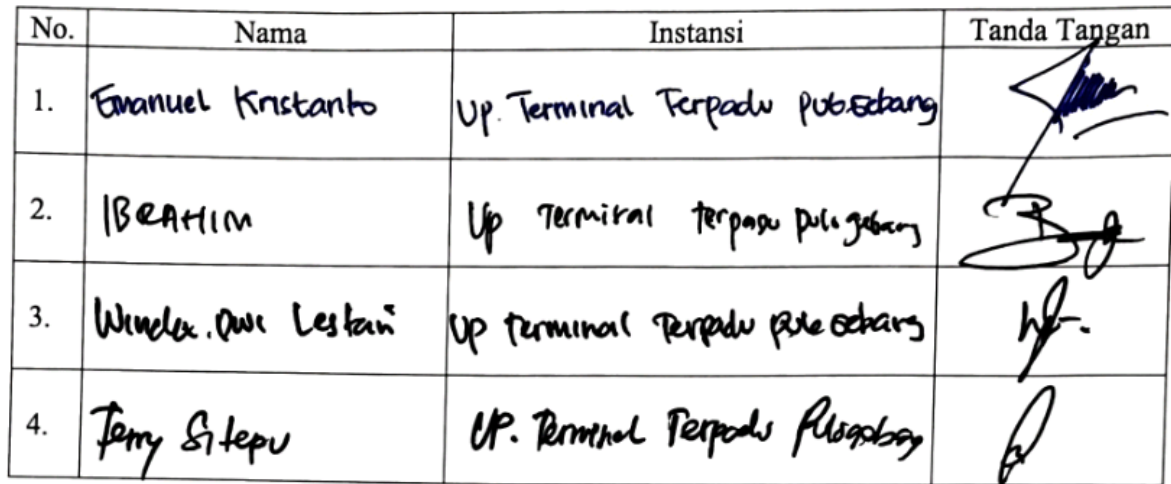 No. Nama Instansi Tanda Tangan
1. Emanuel Kristanto Up. Terminal Terpadu Pulogebang
2. IBRAHIM Up Terminal terpadu pulogebang
3. Dwi Lestari Up Terminal Terpadu Pulo Gebang
4. Sitepu UP. Terminal Terpadu Pulogebang